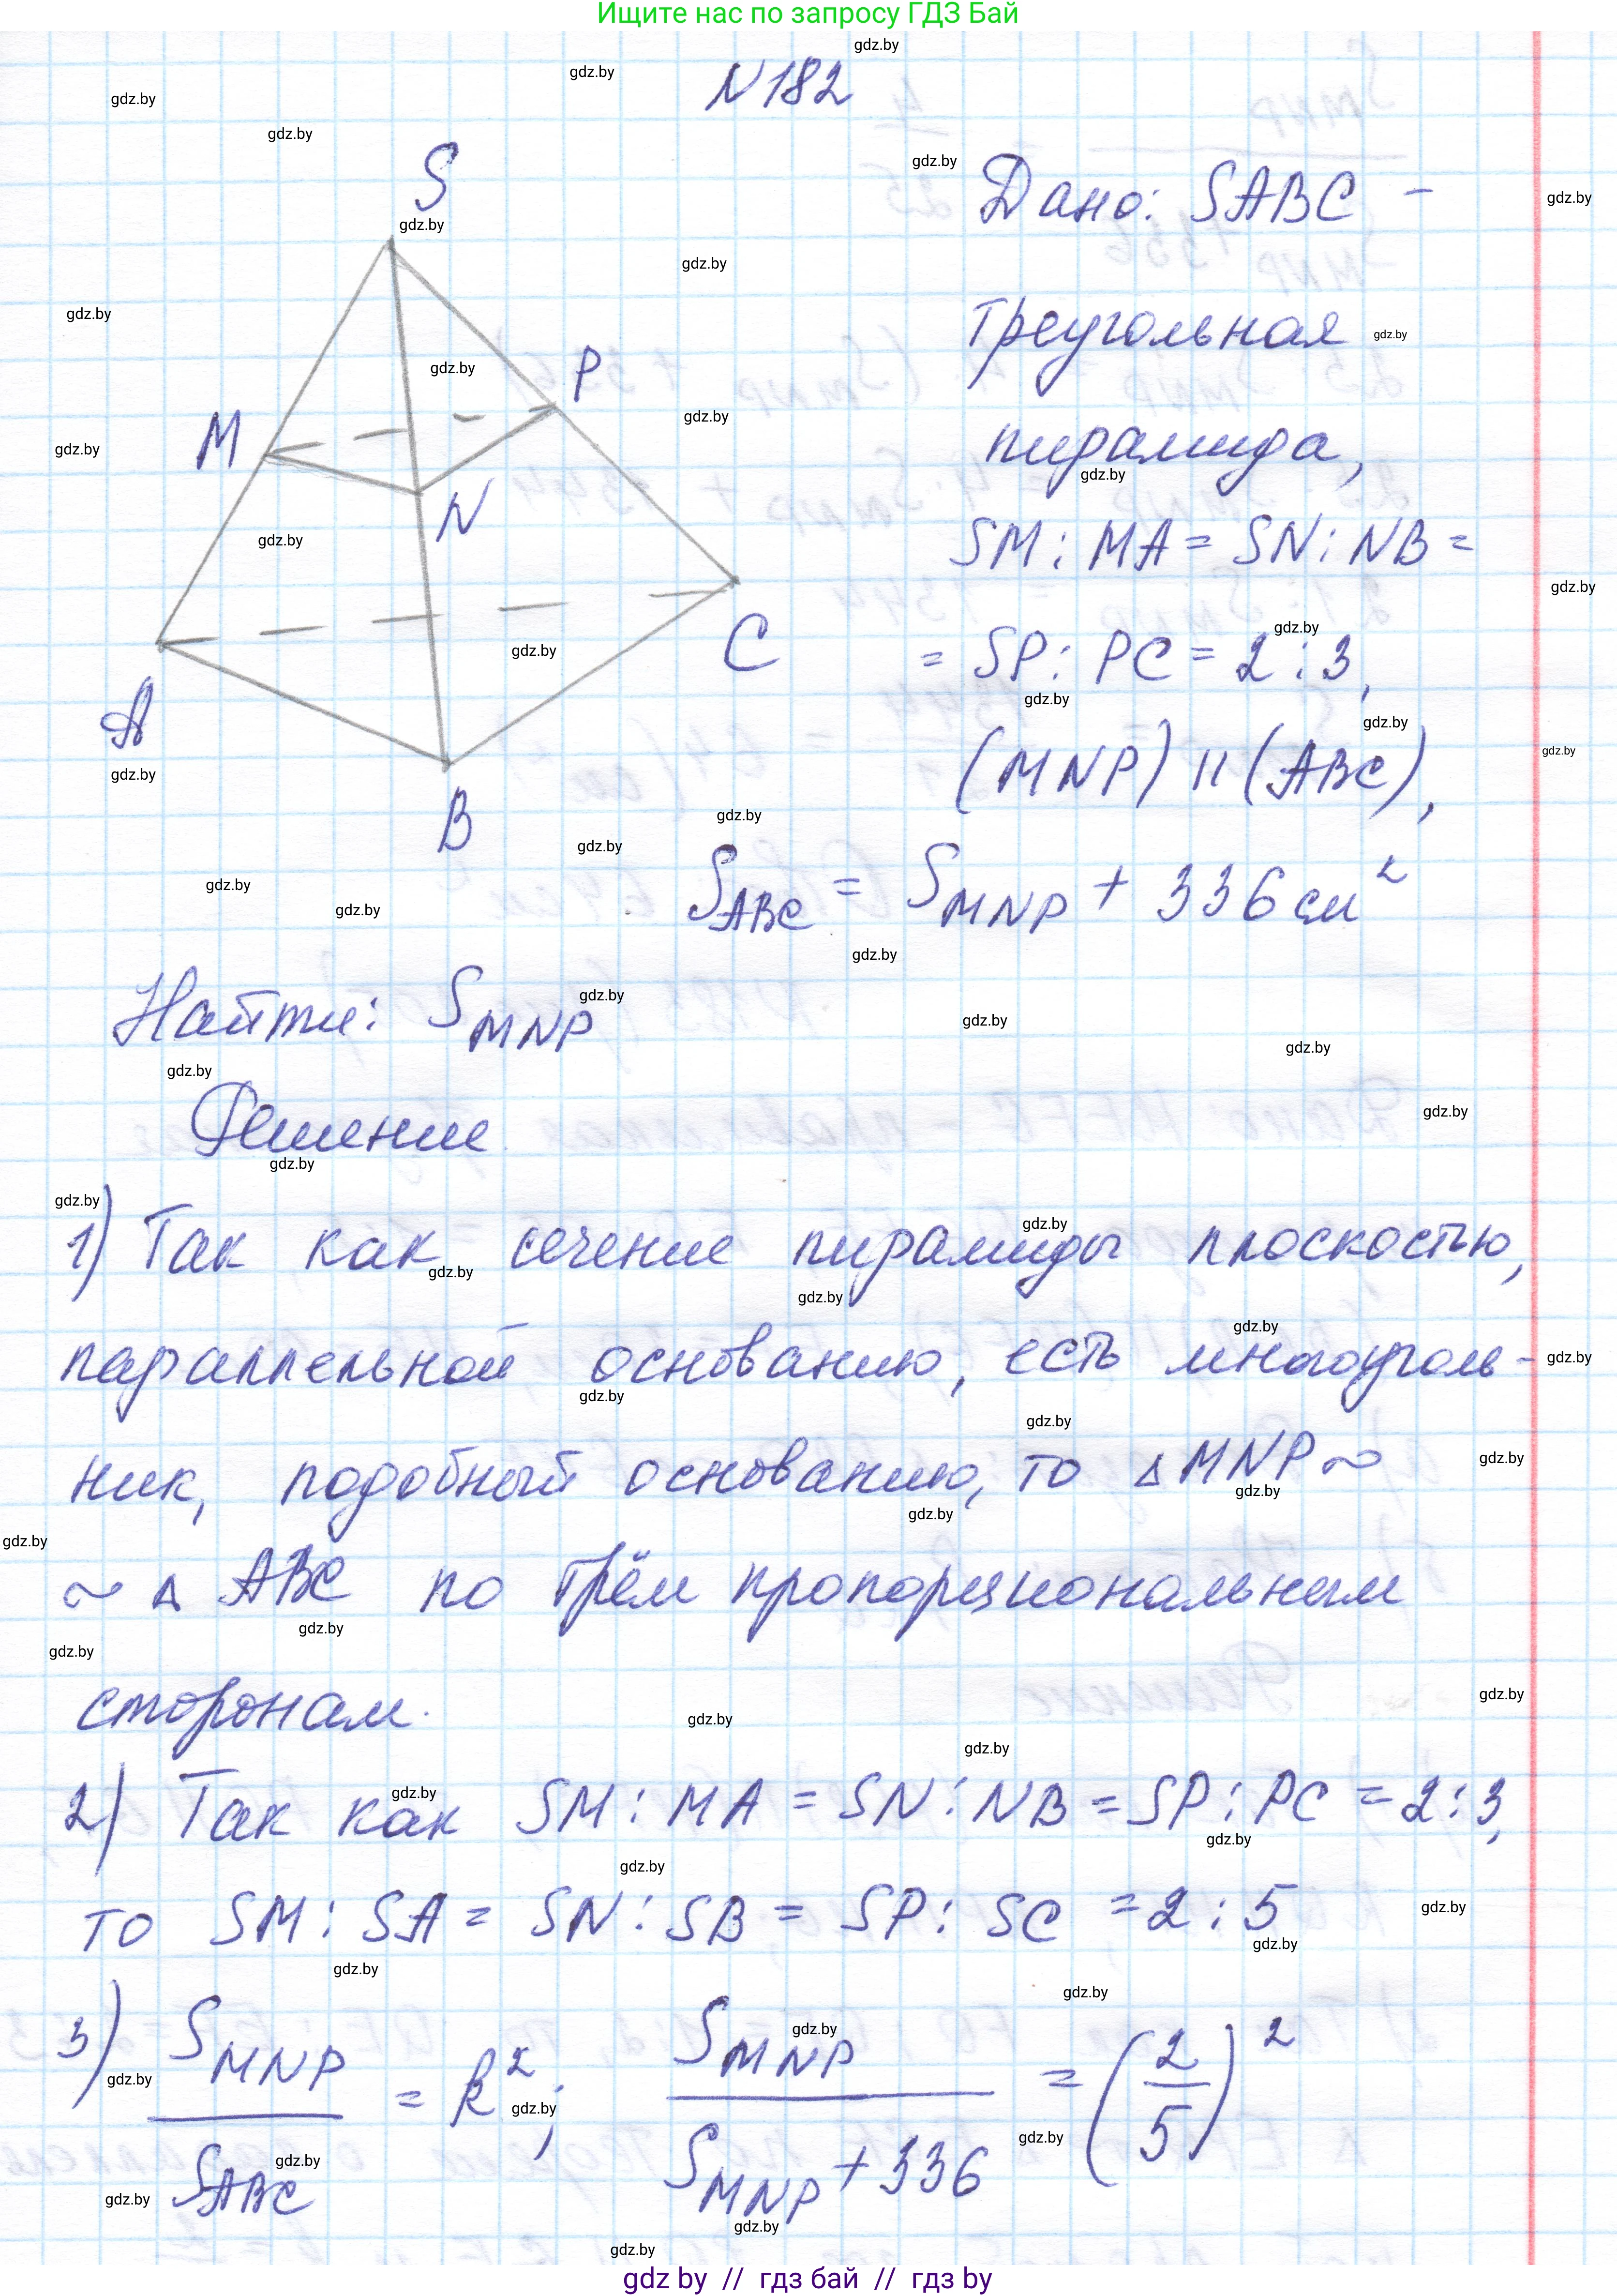 Ищите нас по запросу ГДЗ Бай
N 182
S
M
P
N
A
C
B
Дано: SABC –
треугольная
пирамида,
SM : MA = SN : NB =
= SP : PC = 2 : 3,
(MNP) || (ABC),
S_ABC = S_MNP + 336 см²
Найти: S_MNP
Решение
1) Так как сечение пирамиды плоскостью,
параллельной основанию, есть многоуголь-
ник, подобный основанию, то △MNP ~
~ △ ABC по трём пропорциональным
сторонам.
2) Так как SM : MA = SN : NB = SP : PC = 2 : 3,
то SM : SA = SN : SB = SP : SC = 2 : 5
3) S_MNP / S_ABC = k²; S_MNP / (S_MNP + 336) = (2/5)²
gdz.by
gdz by // гдз бай // гдз by